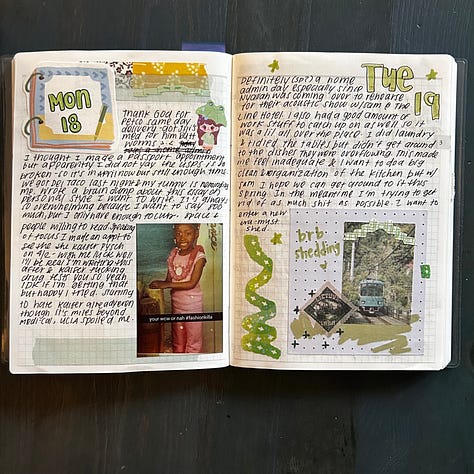 MON
18
Thank God for
Petco same day
delivery - got silis
meal
worms
I thought I made a passport appointment
but apparently I did not yay the USPS site is
broken - so it's in April now but still enough time
We got Del Taco last night & my tummy is
me. Wrote a brain dump about this essay on
personal style I want to write. It's always
so overwhelming because I want to say soo
much, but I only have enough to curr. space &
people willing to read.
of focus I made an appt to
see the the Kaiser psych
on 4/2 - wish me luck. Well
I'll be real I'm writing this
after & Kaiser fucking
drug test you so yeah
IDK if I'm getting that
but happy I tried. Starting
to hate Kaiser already even
though it's miles beyond
Medical. UCLA spoiled me.
your wcw or nah #fashionkilla
Tue
19
Definitely (sort) a home
admin day especially since
was coming over to rehearse
for their acoustic show w/ Sam @ the
Line Hotel. I also had a good amount of
work stuff to catch up on as well so it
was a lil all over the place. I did laundry
& tidied the tables but didn't get around
to the dishes they were overflowing. This made
me feel inadequate & I want to do a big
clean & organization of the kitchen but w/
Sam. I hope we can get around to it this
spring. In the meantime I'm trying to get
rid of as much shit as possible. I want to
enter a new
era - must
shed.
brb
shedding